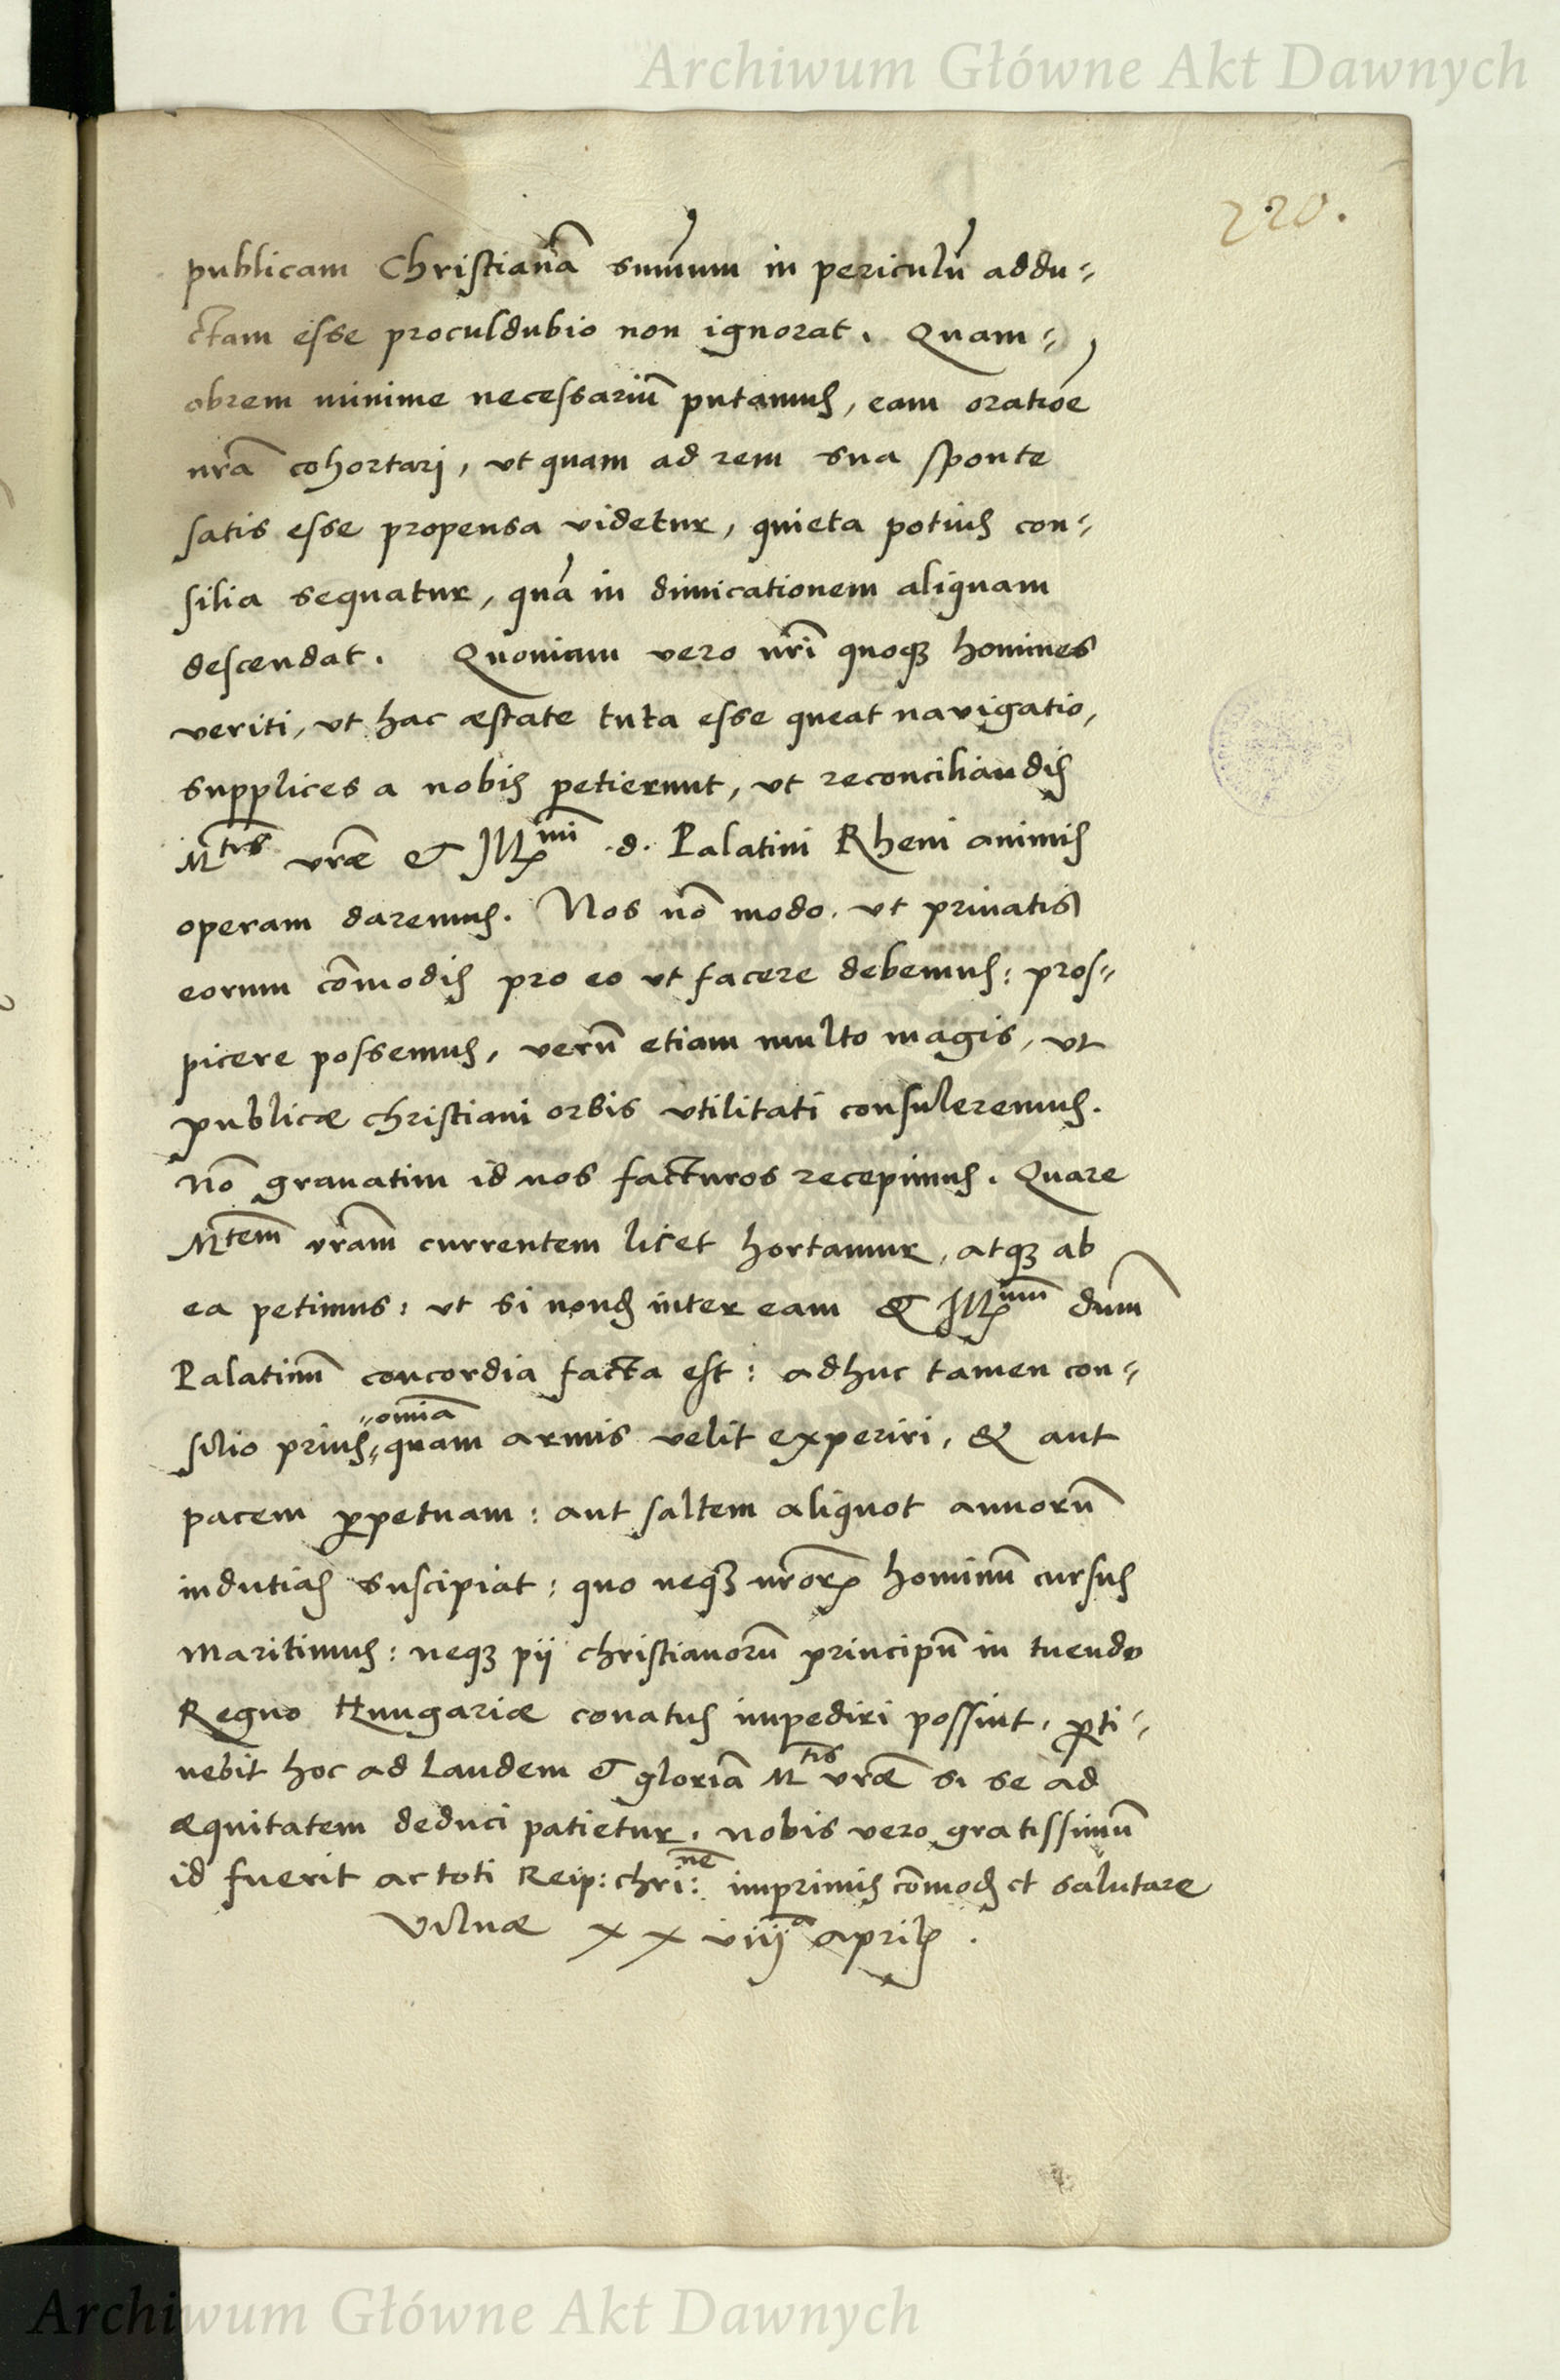 Archiwum Główne Akt Dawnych
220.
publicam Christianā sum̄um in periculū addu=
ctam esse proculdubio non ignorat. Quam=
obrem minime necessariū putamus, eam oratiōe
nrā cohortari, ut quam ad rem sua sponte
satis esse propensa videtur, quieta potius con=
silia sequatur, quā in dimicationem aliquam
descendat. Quoniam vero nrī quoqꝫ homines
veriti, ut hac æstate tuta esse queat navigatio,
supplices a nobis petierunt, ut reconciliandis
Mtis vræ & Illmi .d. Palatini Rheni animis
operam daremus. Nos nō modo, ut privatis
eorum cōmodis pro eo ut facere debemus: pros=
picere possemus, verū etiam multo magis, ut
publicæ christiani orbis utilitati consuleremus.
nō gravatim id nos facturos recepimus. Quare
Mtem vram currentem licet hortamur, atqꝫ ab
ea petimus: ut si nond inter eam & Illmum dnum
Palatinū concordia facta est: adhuc tamen con=
silio prius omīa quam armis velit experiri, & aut
pacem ꝑpetuam: aut saltem aliquot annorū
indutias suscipiat: quo neqꝫ nrorꝝ hominū cursus
maritimus: neqꝫ pij christianorū principū in tuendo
Regno Hungariæ conatus impediri possint, ꝑti=
nebit hoc ad laudem & gloriā Mtis vræ si se ad
æquitatem deduci patietur, nobis vero gratissimū
id fuerit ac toti Reip: chri:nē imprimis cōmod et salutare
Vilnæ xxviijª april .
Archiwum Główne Akt Dawnych